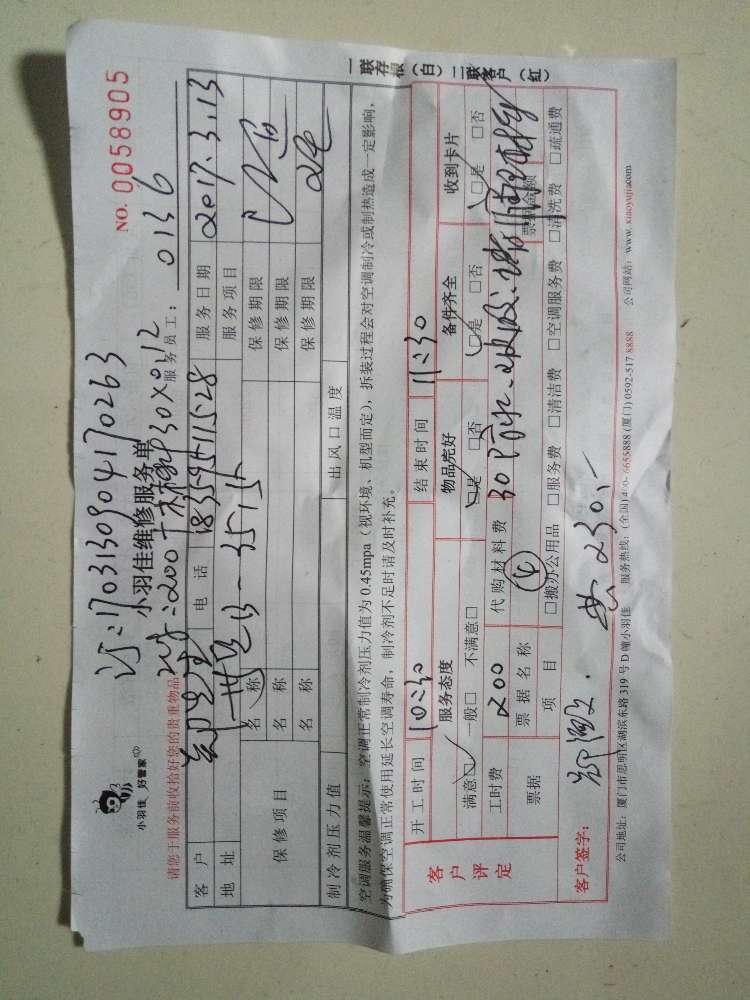 小羽佳 好管家
NO. 0058905
订:170313090417 0263
小羽佳维修服务单
请您于服务前收拾好您的贵重物品
服务员工: 0136
客户 电话 服务日期 2017.3.13
地址 服务项目
保修项目 名称 保修期限
名称 保修期限
名称 保修期限
制冷剂压力值 出风口温度
空调服务温馨提示:空调正常制冷剂压力值为0.45mpa(视环境、机型而定),拆装过程会对空调制冷或制热造成一定影响,
为确保空调正常使用延长空调寿命,制冷剂不足时请及时补充。
客户评定
开工时间 10:30 结束时间 11:30
服务态度 物品完好 备件齐全 收到卡片
满意□ 一般□ 不满意□ □是 □否 □是 □否 □是 □否
工时费 200 代购材料费 30
票据 票据名称 票据金额
项目 □搬办公用品 □服务费 □清洁费 □空调服务费 □清洗费 □疏通费
客户签字: 共230.-
公司地址:厦门市思明区湖滨东路319号D幢小羽佳 服务热线:(全国)400-6655888(厦门)0592-517 8888 公司网站:www.xiaoyujia.com
一联存根(白)二联客户(红)